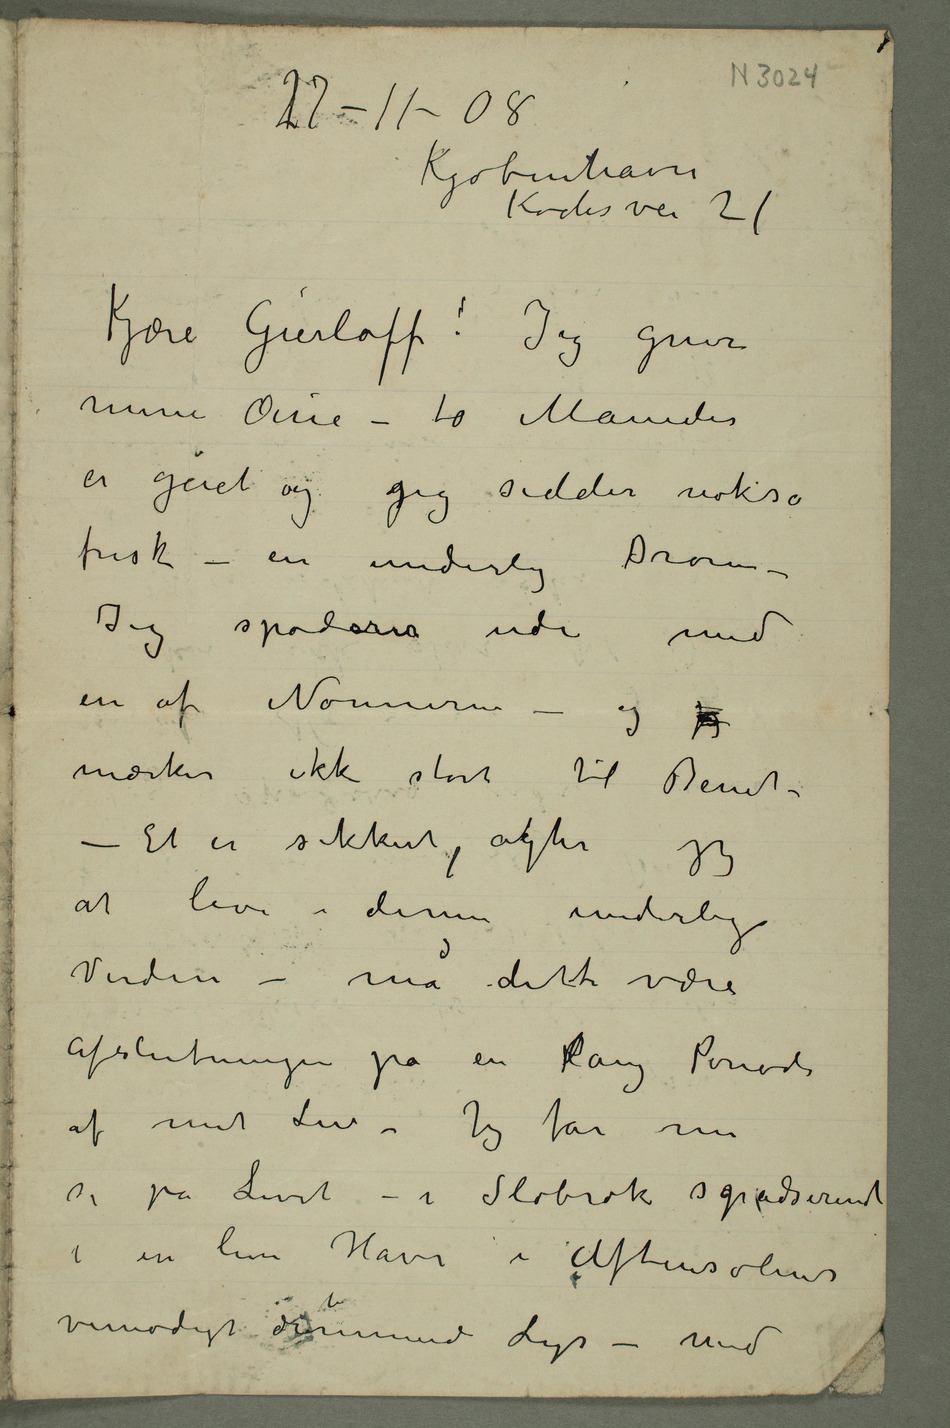 N 3024
27-11-08
Kjøbenhavn
Kochsvei 21
Kjære Gierløff! Jeg gnir
mine Øine – to Maaneder
er gået og jeg sidder nokså
frisk – en underlig Drøm –
Jeg spadserer ude med
en af Nonnerne – og
mærker ikke stort til Benet –
– Et er sikkert, agter jeg
at leve i denne underlige
Verden – må dette være
Afslutningen på en lang Periode
af mit Liv – Jeg får nu
se på Livet – i Slobrok spadserende
i en liten Have i Aftensolens
vemodigt dæmmende Lys – med